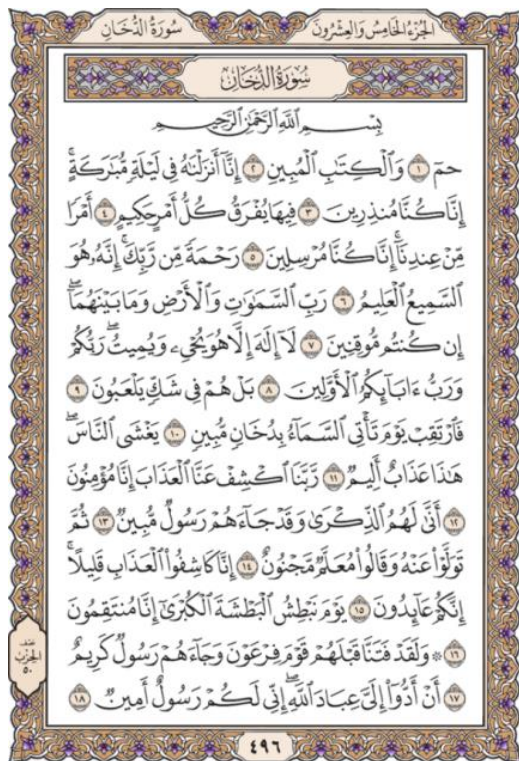 سُورَةُ الدُّخَانِ الجُزْءُ الخَامِسُ وَالعِشْرُونَ
سُورَةُ الدُّخَانِ
بِسْمِ اللَّهِ الرَّحْمَٰنِ الرَّحِيمِ
حمٓ ١ وَالْكِتَابِ الْمُبِينِ ٢ إِنَّا أَنزَلْنَاهُ فِي لَيْلَةٍ مُّبَارَكَةٍ ۚ
إِنَّا كُنَّا مُنذِرِينَ ٣ فِيهَا يُفْرَقُ كُلُّ أَمْرٍ حَكِيمٍ ٤ أَمْرًا
مِّنْ عِندِنَا ۚ إِنَّا كُنَّا مُرْسِلِينَ ٥ رَحْمَةً مِّن رَّبِّكَ ۚ إِنَّهُ هُوَ
السَّمِيعُ الْعَلِيمُ ٦ رَبِّ السَّمَٰوَٰتِ وَالْأَرْضِ وَمَا بَيْنَهُمَا ۖ
إِن كُنتُم مُّوقِنِينَ ٧ لَا إِلَٰهَ إِلَّا هُوَ يُحْيِۦ وَيُمِيتُ ۖ رَبُّكُمْ
وَرَبُّ ءَابَآئِكُمُ الْأَوَّلِينَ ٨ بَلْ هُمْ فِي شَكٍّ يَلْعَبُونَ ٩
فَارْتَقِبْ يَوْمَ تَأْتِي السَّمَآءُ بِدُخَانٍ مُّبِينٍ ١٠ يَغْشَى النَّاسَ ۖ
هَٰذَا عَذَابٌ أَلِيمٌ ١١ رَّبَّنَا اكْشِفْ عَنَّا الْعَذَابَ إِنَّا مُؤْمِنُونَ
١٢ أَنَّىٰ لَهُمُ الذِّكْرَىٰ وَقَدْ جَآءَهُمْ رَسُولٌ مُّبِينٌ ١٣ ثُمَّ
تَوَلَّوْا عَنْهُ وَقَالُوا مُعَلَّمٌ مَّجْنُونٌ ١٤ إِنَّا كَاشِفُوا الْعَذَابِ قَلِيلًا ۚ
إِنَّكُمْ عَآئِدُونَ ١٥ يَوْمَ نَبْطِشُ الْبَطْشَةَ الْكُبْرَىٰ إِنَّا مُنتَقِمُونَ
١٦ ۞ وَلَقَدْ فَتَنَّا قَبْلَهُمْ قَوْمَ فِرْعَوْنَ وَجَآءَهُمْ رَسُولٌ كَرِيمٌ
١٧ أَنْ أَدُّوٓا إِلَيَّ عِبَادَ اللَّهِ ۖ إِنِّي لَكُمْ رَسُولٌ أَمِينٌ ١٨
نصف
الحزب
٥٠
٤٩٦